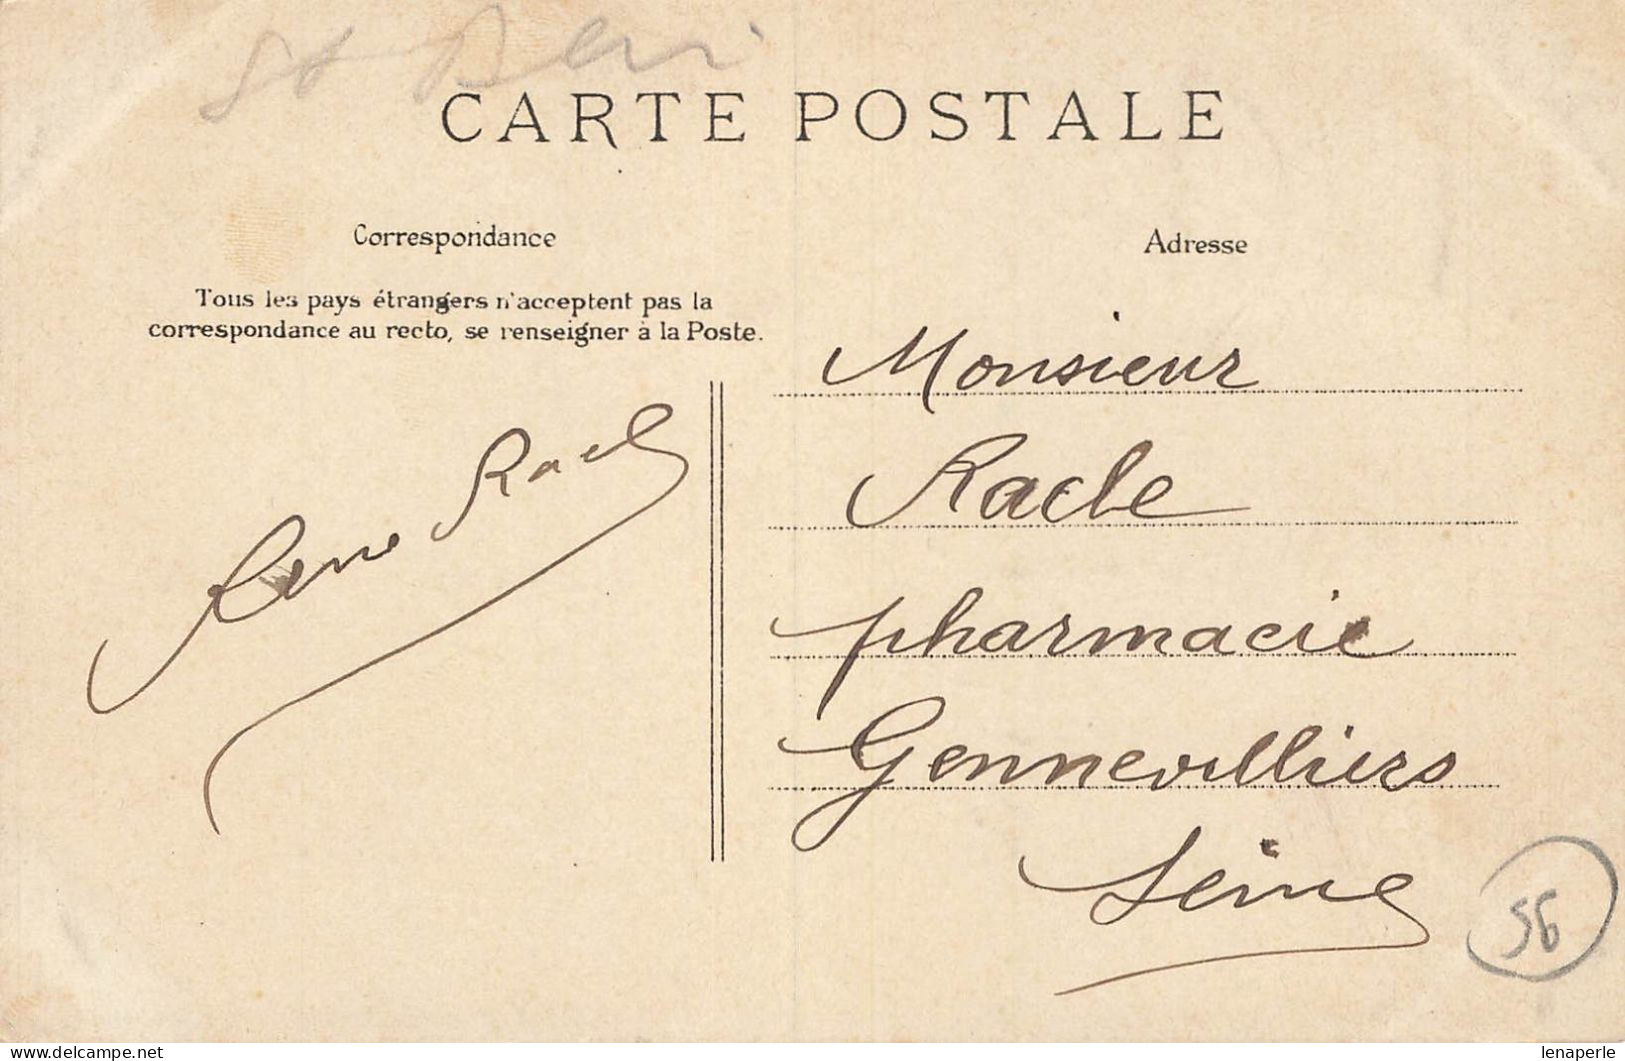 CARTE POSTALE
Correspondance
Tous les pays étrangers n'acceptent pas la
correspondance au recto, se renseigner à la Poste.
Racle
Adresse
Monsieur
Racle
pharmacie
Gennevilliers
Seine
56
delcampe.net
lenaperle